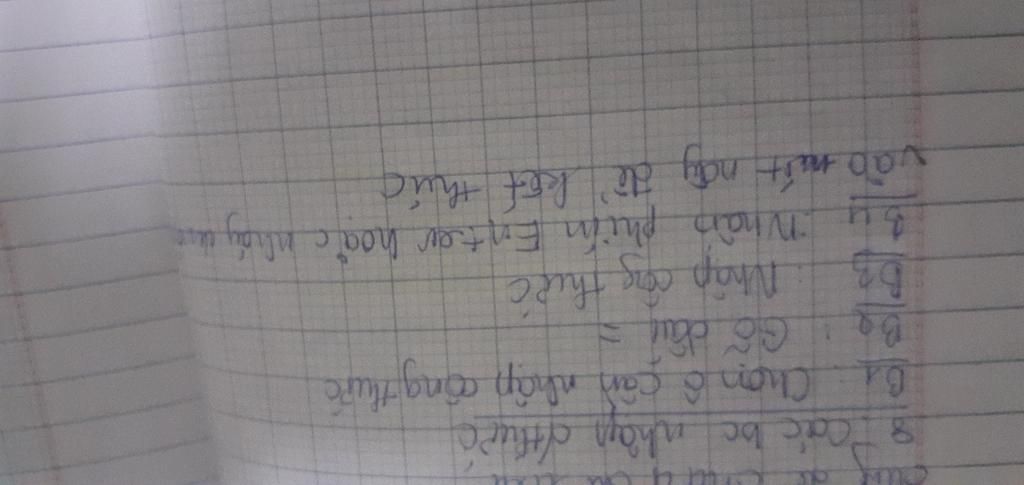 8 Các bc nhập cthức
B1: Chọn ô cần nhập công thức
B2: Gõ dấu =
B3: Nhập công thức
B4: Nhấn phím Enter hoặc nháy
vào nút này để kết thúc